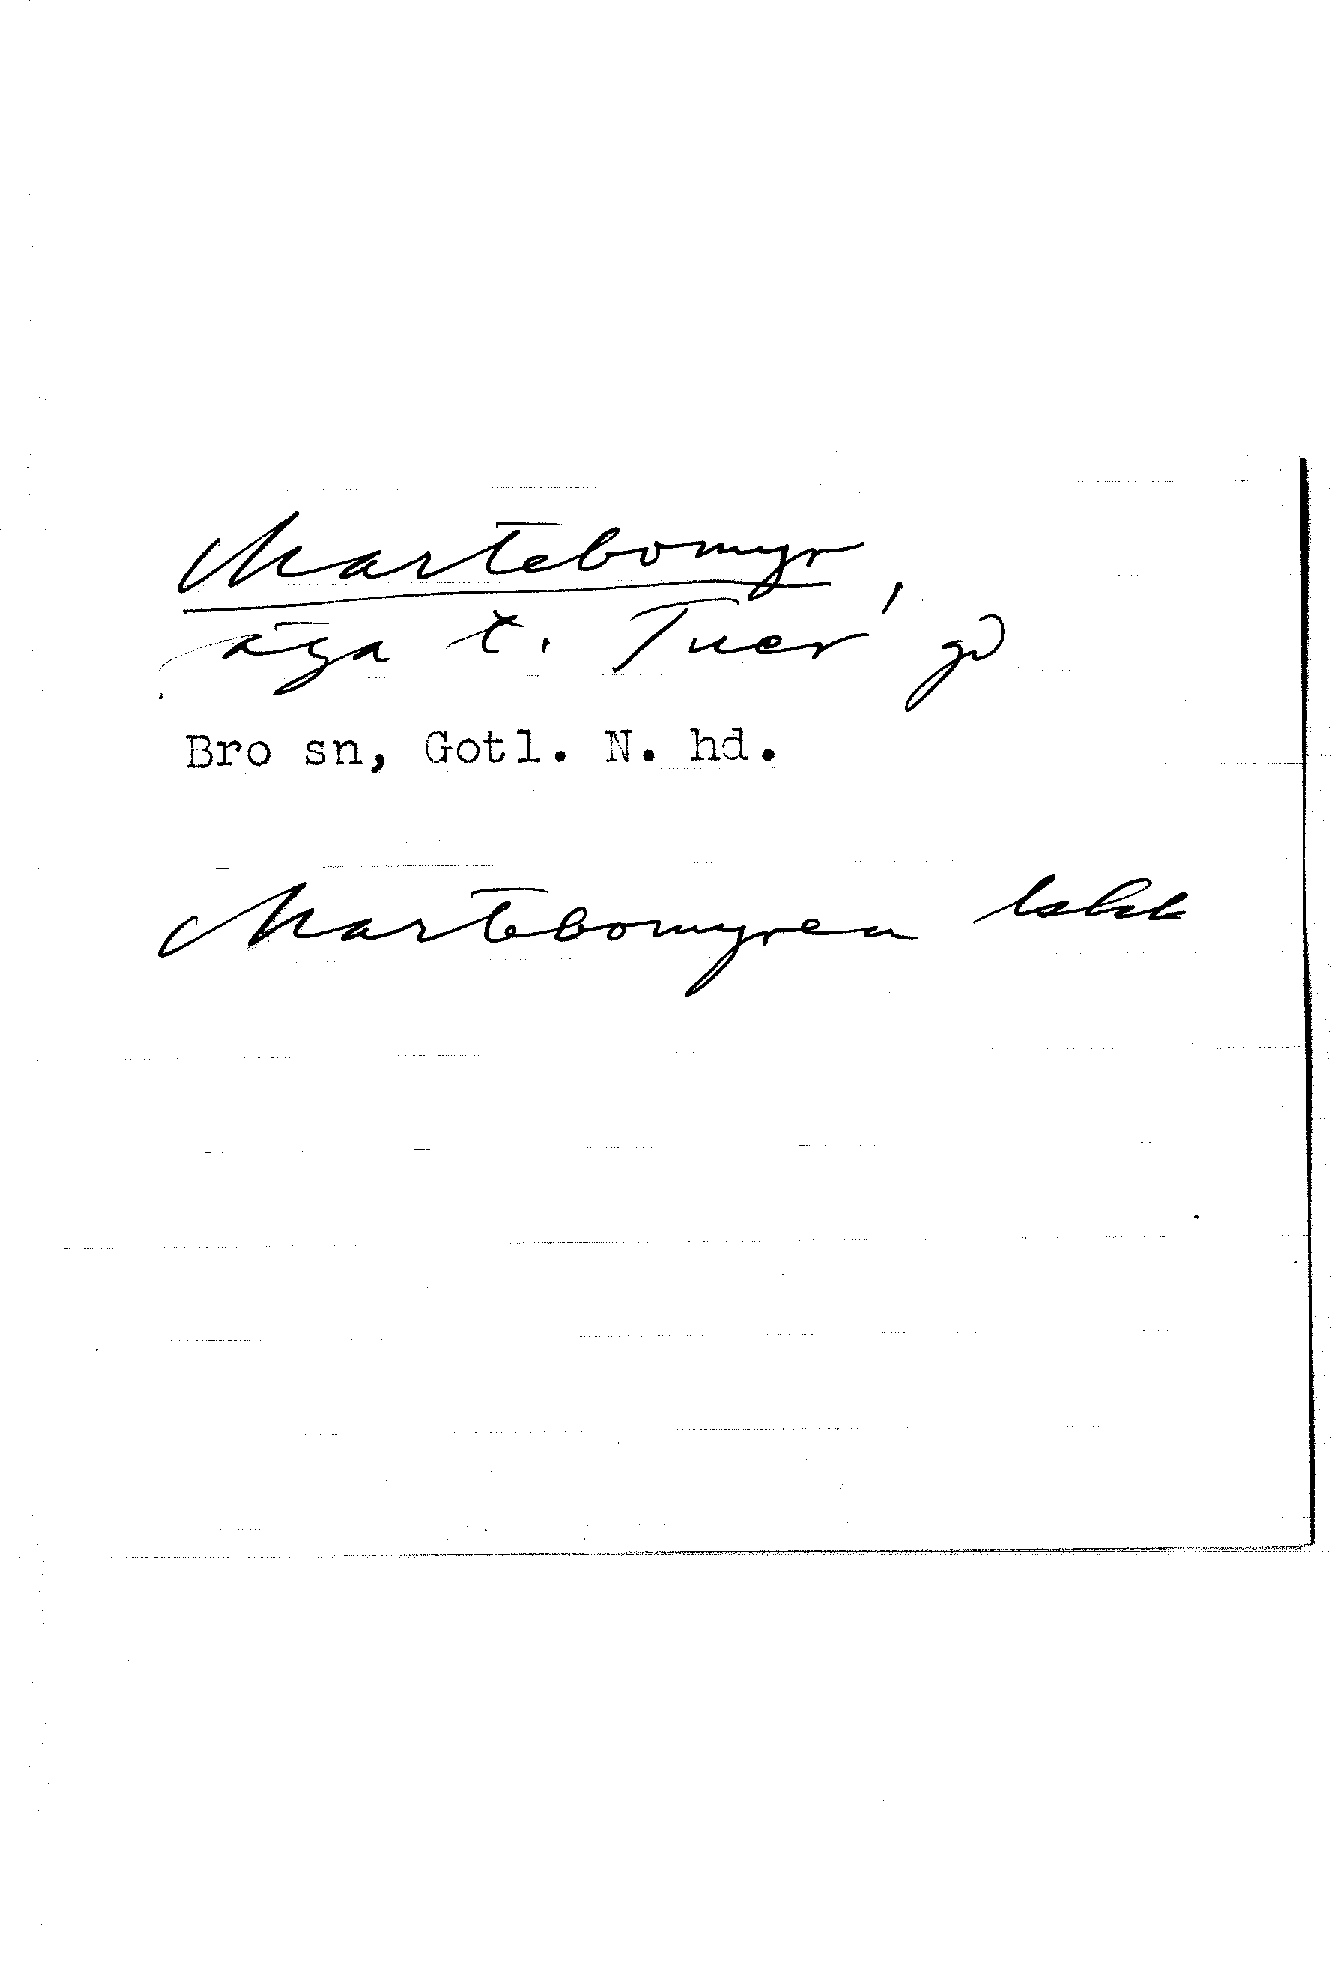 Martebomyr,
äga t. Tuer gd
Bro sn, Gotl. N. hd.
Martebomyren